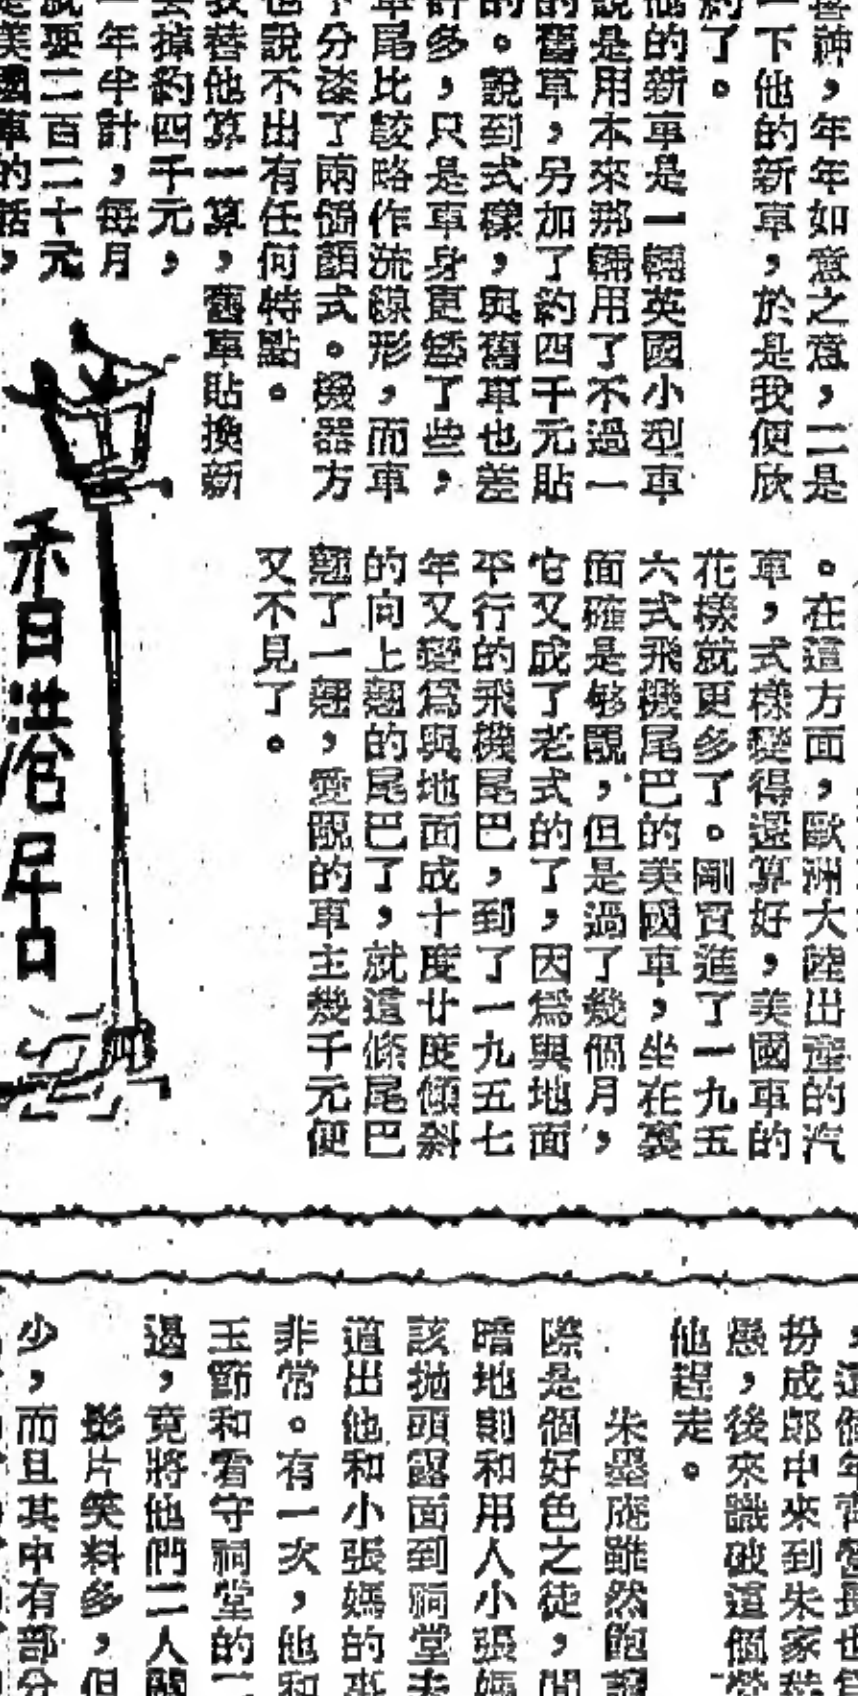 喜神，年年如意之意，二是
一下他的新車，於是我便欣
約了。
他的新車是一輛英國小型車
說是用本來那輛用了不過一
的舊車，另加了約四千元貼
的。說到式樣，與舊車也差
許多，只是車身更矮了些，
車尾比較略作流線形，而車
下分漆了兩個顏式。機器方
也說不出有任何特點。
我替他算一算，舊車貼換新
去掉約四千元，
一年半計，每月
就要二百二十元
是美國車的話，
香港居
。在這方面，歐洲大陸出產的汽
車，式樣變得還算好，美國車的
花樣就更多了。剛買進了一九五
六式飛機尾巴的美國車，坐在裏
面確是够靚，但是過了幾個月，
它又成了老式的了，因爲與地面
平行的飛機尾巴，到了一九五七
年又變爲與地面成十度廿度傾斜
的向上翹的尾巴了，就這條尾巴
翹了一翹，愛靚的車主幾千元便
又不見了。
扮成郎中來到朱家
後來識破這個
他趕走。
朱墨庵雖然飽
際是個好色之徒，
暗地則和用人小張媽
該拋頭露面到祠堂去
道出他和小張媽的
非常。有一次，他和
玉節和看守祠堂的
過，竟將他們二人
影片笑料多，但
少，而且其中有部分